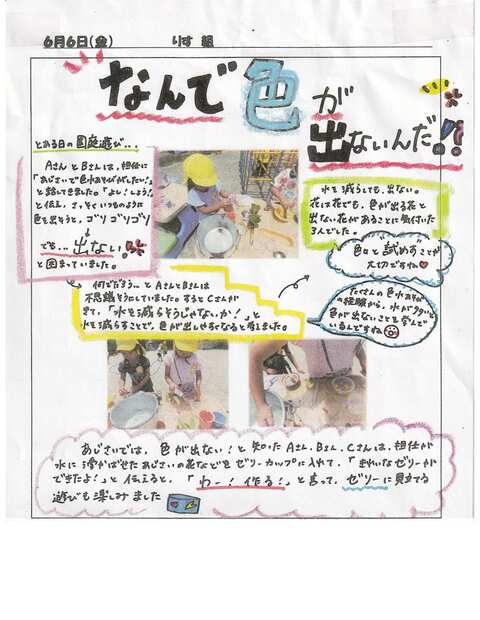 6月6日(金)　りす 組
なんで色が
出ないんだ?!!
とある日の園庭遊び...
AさんとBさんは、担任に
「あじさいで色水あそびがしたい!」
と話してきました。「よし!しよう!」
と伝え、さっそくいつものように
色を出そうと、ゴリゴリゴリ
↓
でも...出ない!
と困っていました。
水を減らしても、出ない。
花は花でも、色が出る花と
出ない花があることに気付いた
3人でした。
色々と"試めす"ことが
大切ですね
何でだろう...とAさんとBさんは
不思議そうにしていました。するとCさんが
来て、「水を減らそうじゃないか!」と
水を減らすことで、色が出しやすくなると考えました。
たくさんの色水あそび
の経験から、水が多いと
色が出ないことを学んで
いるんですね
あじさいでは、色が出ない!と知ったAさん、Bさん、Cさんは、担任が
水に浮かばせたあじさいの花などをゼリーカップに入れて、「きれいなゼリーが
できたよ!」と伝えると、「わー!作る!」と言って、ゼリーに見立てる
遊びも楽しみました